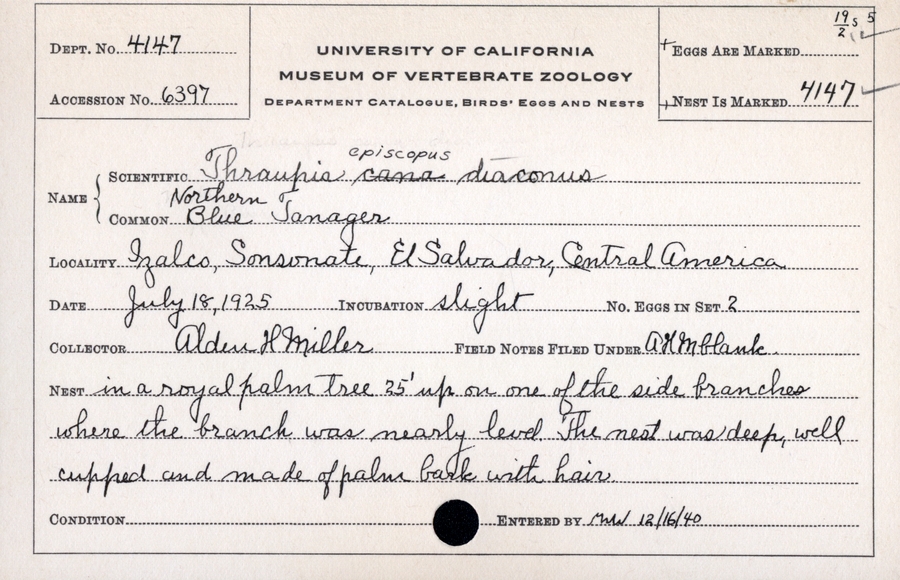 19/2 s 5
DEPT. No. 4147
UNIVERSITY OF CALIFORNIA
EGGS ARE MARKED
MUSEUM OF VERTEBRATE ZOOLOGY
ACCESSION No. 6397
DEPARTMENT CATALOGUE, BIRDS' EGGS AND NESTS
NEST IS MARKED 4147
episcopus
SCIENTIFIC Thraupis cana diaconus
NAME
Northern
COMMON Blue Tanager
LOCALITY Izalco, Sonsonate, El Salvador, Central America
DATE July 18, 1925 INCUBATION slight No. EGGS IN SET 2
COLLECTOR Alden H Miller FIELD NOTES FILED UNDER AHM blank
NEST in a royal palm tree 25' up on one of the side branches
where the branch was nearly level. The nest was deep, well
cupped and made of palm bark with hair
CONDITION ENTERED BY 12/16/40